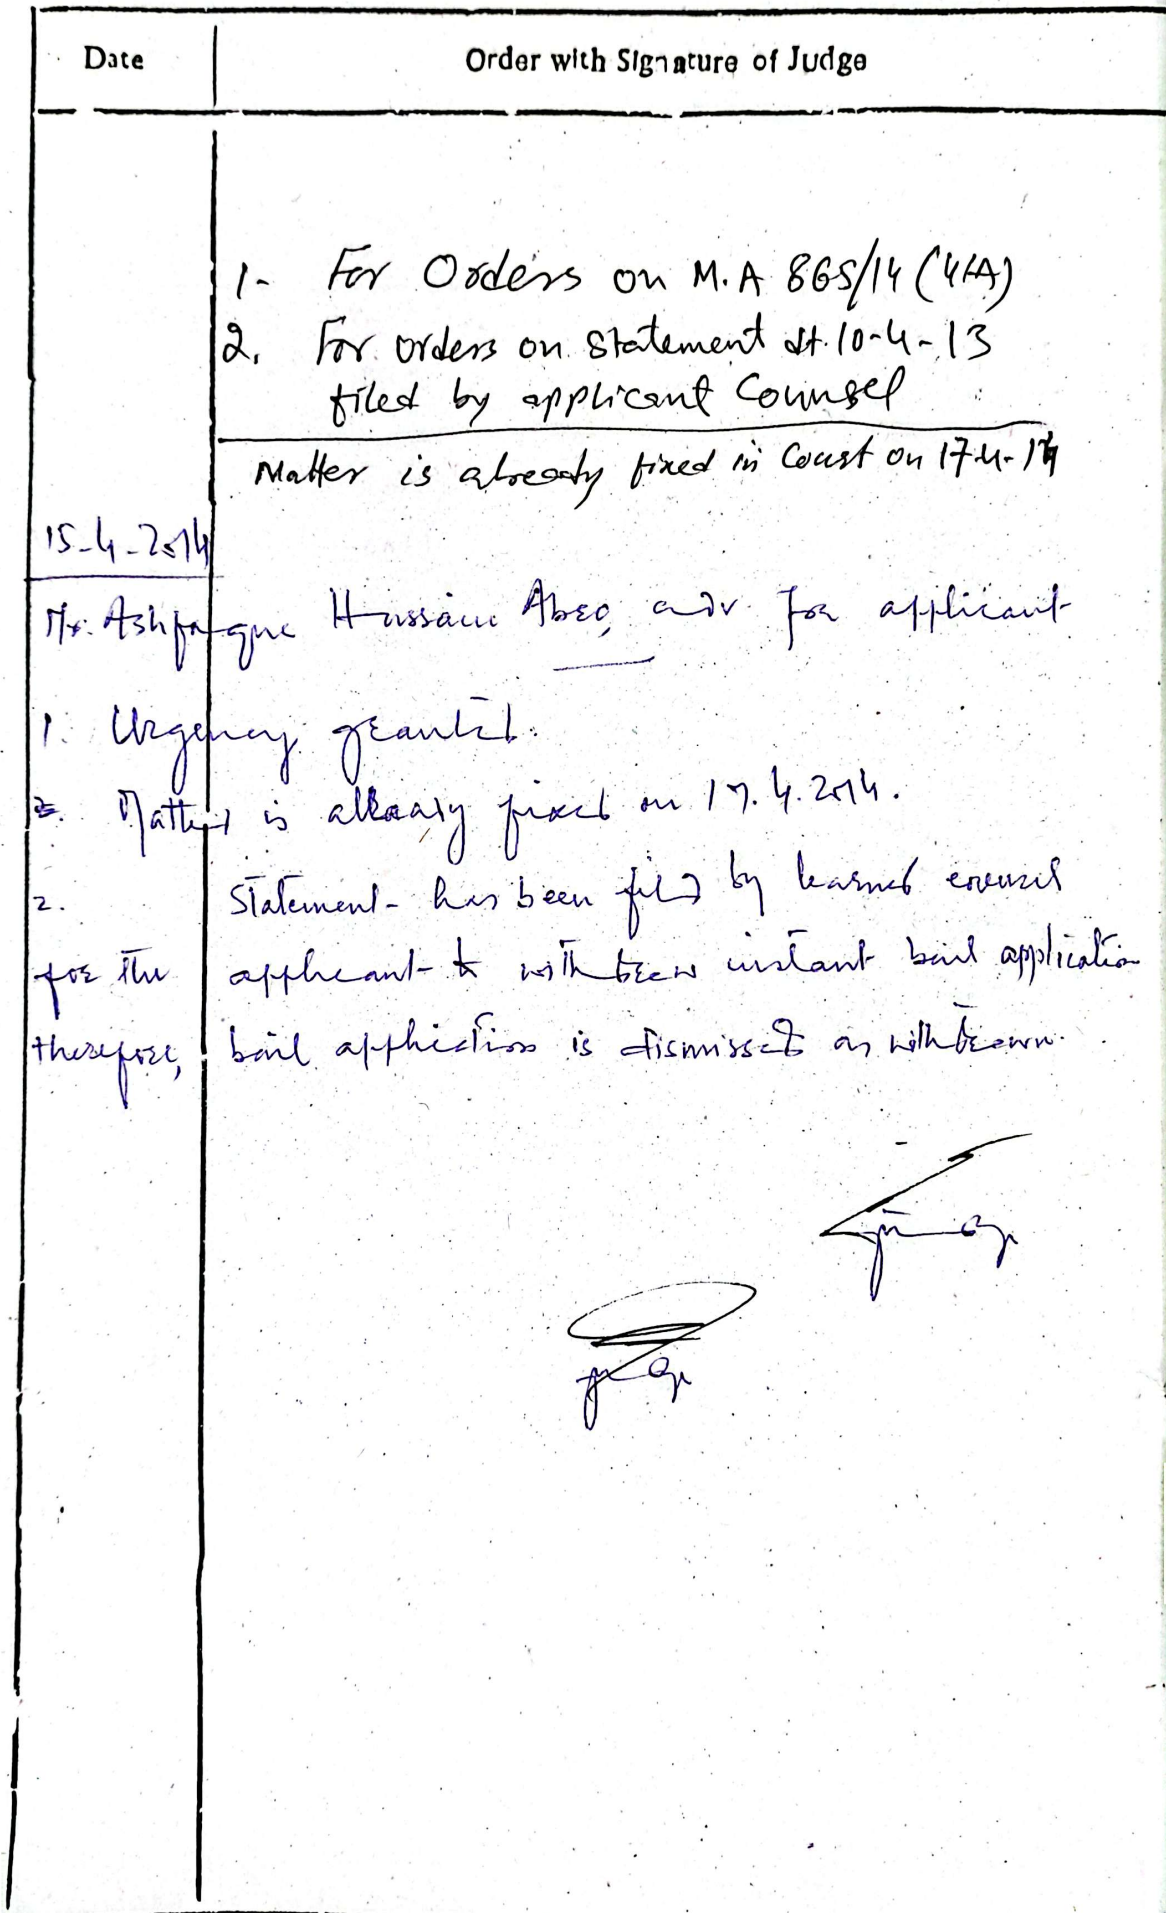 Date
Order with Signature of Judge
1- For Orders on M.A 865/14 (U/A)
2. For orders on Statement dt. 10-4-13
filed by applicant Counsel
Matter is already fixed in Court on 17-4-14
15-4-2014
Mr. Ashfaque Hussain Abro, adv. for applicant
1. Urgency granted.
Matter is already fixed on 17.4.2014.
2. Statement has been filed by learned counsel
for the applicant to withdraw instant bail application
therefore, bail application is dismissed as withdrawn.